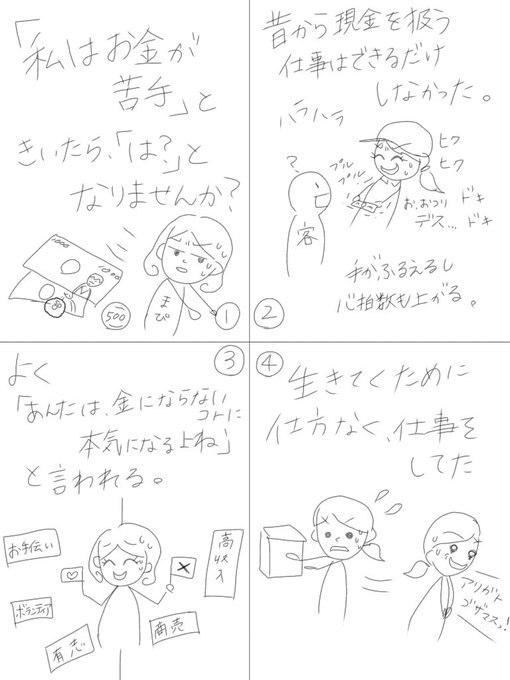 「私はお金が
苦手」と
きいたら、「は?」と
なりませんか?
500
まぴ
①
昔から現金を扱う
仕事はできるだけ
しなかった。
ハラハラ
ヒク
ヒク
?
プル
プル
お、おつり
デス…
ドキ
ドキ
客
手がふるえるし
心拍数も上がる。
②
③
よく
「あんたは、金にならない
コトに
本気になるよね」
と言われる。
お手伝い
ボランティア
有志
商売
高収入
④
生きてくために
仕方なく、仕事を
してた
アリガト
ゴザマスっ!